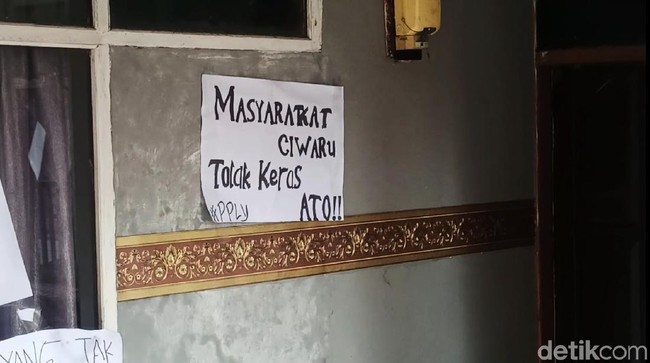 MASYARAKAT
CIWARU
Tolak Keras
ATO!!
#PPLY
YANG TAK
detikcom